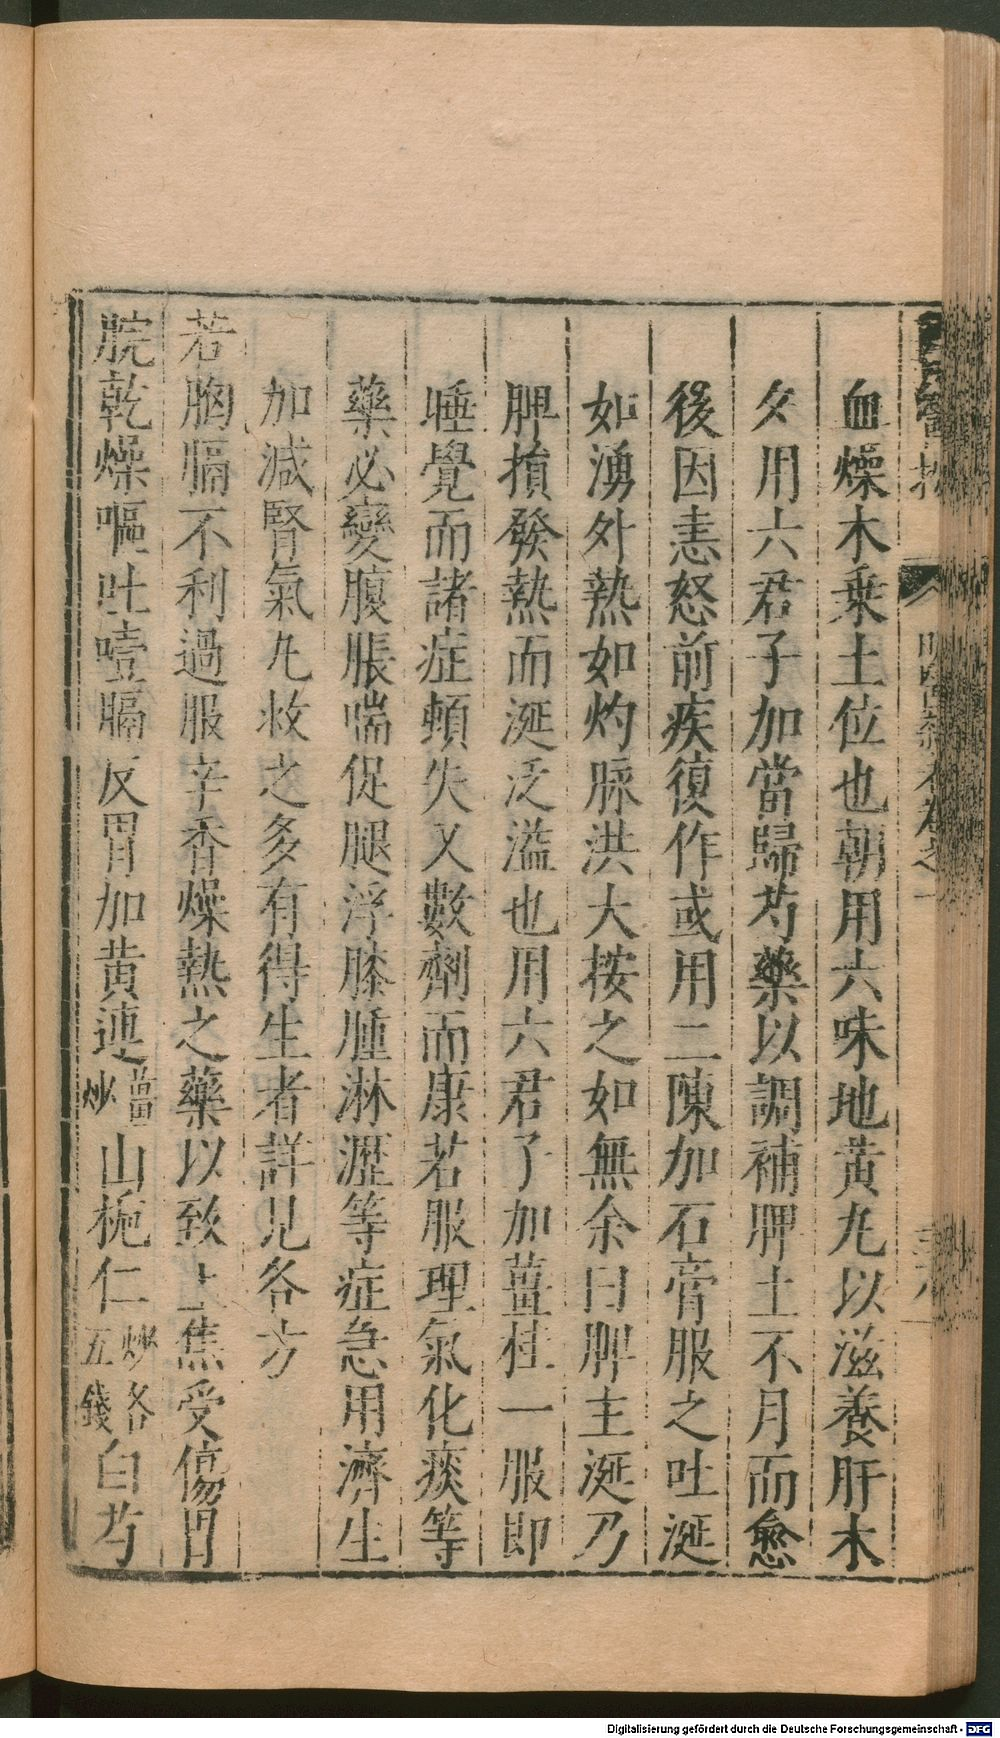 血燥木乗土位也朝用六味地黃丸以滋養肝木
夕用六君子加當歸芍藥以調補脾土不月而愈
後因恚怒前疾復作或用二陳加石膏服之吐涎
如湧外熱如灼脉洪大按之如無余曰脾主涎乃
脾損發熱而涎泛溢也用六君子加薑桂一服即
睡覺而諸症頓失又數劑而康若服理氣化痰等
藥必變腹脹喘促腿浮膝腫淋瀝等症急用濟生
加減腎氣丸救之多有得生者詳見各方
若胸膈不利過服辛香燥熱之藥以致上焦受傷胃
脘乾燥嘔吐噎膈反胃加黃連薑炒山梔仁炒各五錢白芍
Digitalisierung gefördert durch die Deutsche Forschungsgemeinschaft - DFG